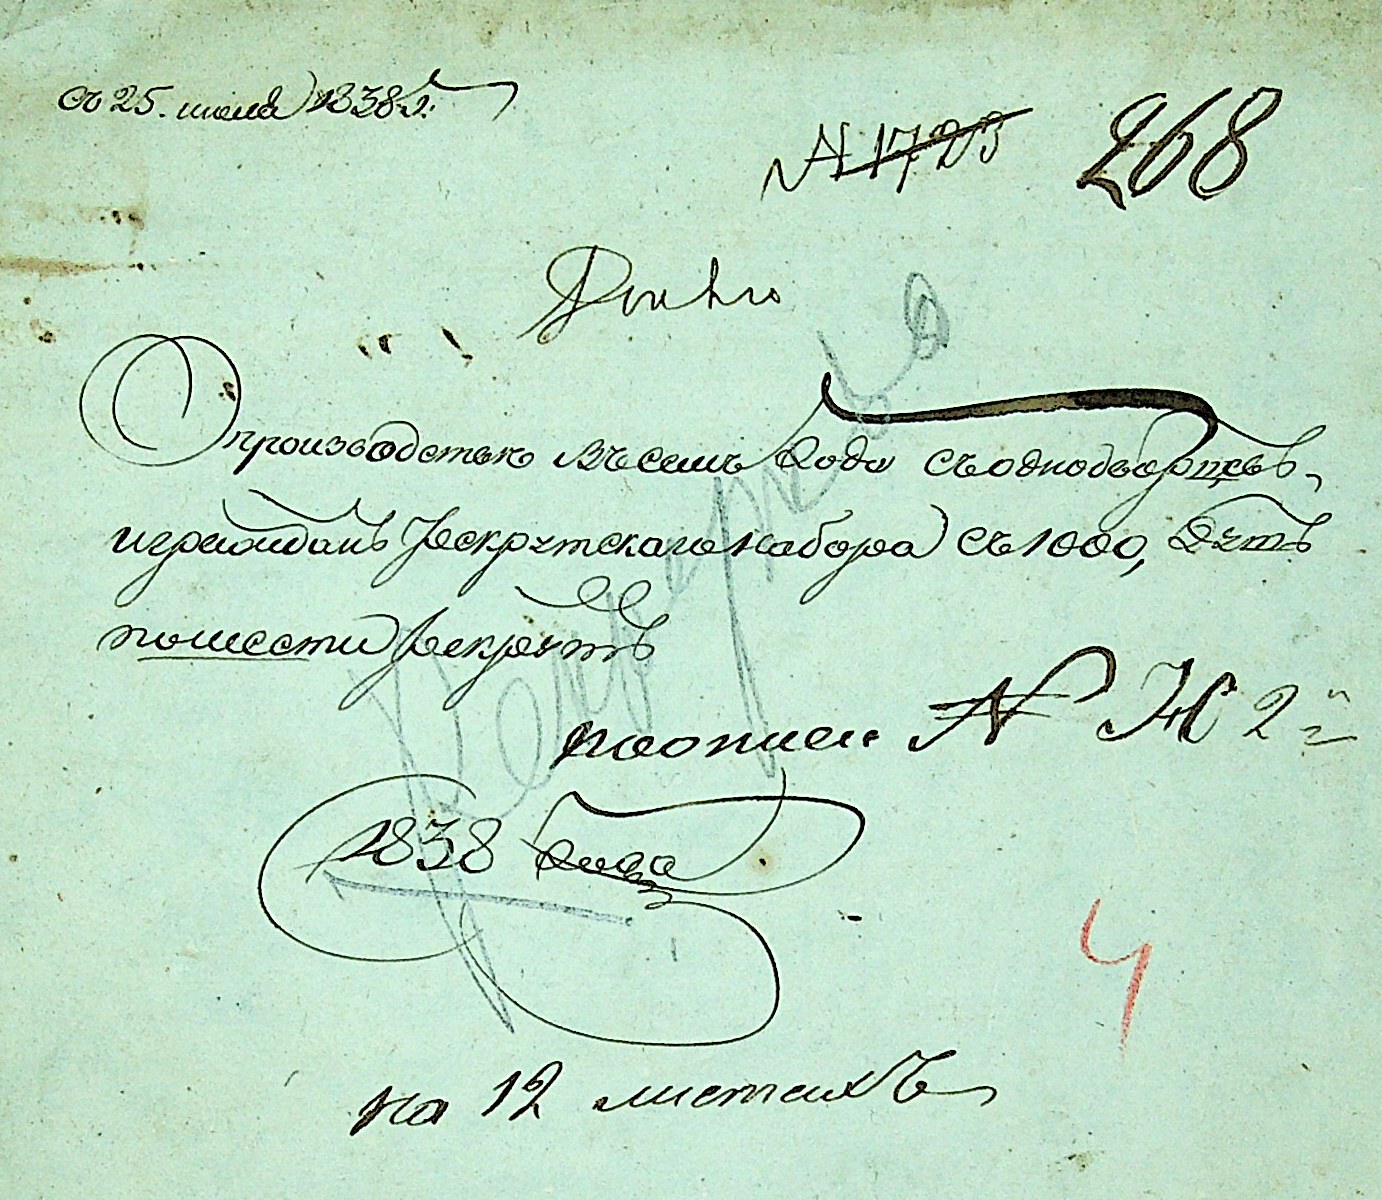 съ 25. июля 1838 г.
№ 1723 268
Дѣло
О производствѣ въ семъ годѣ съ однодворцевъ,
и гражданъ рекрутскаго набора съ 1000, душъ
по шести рекрутъ
по описи № 2й
1838 года
4
на 12 листахъ